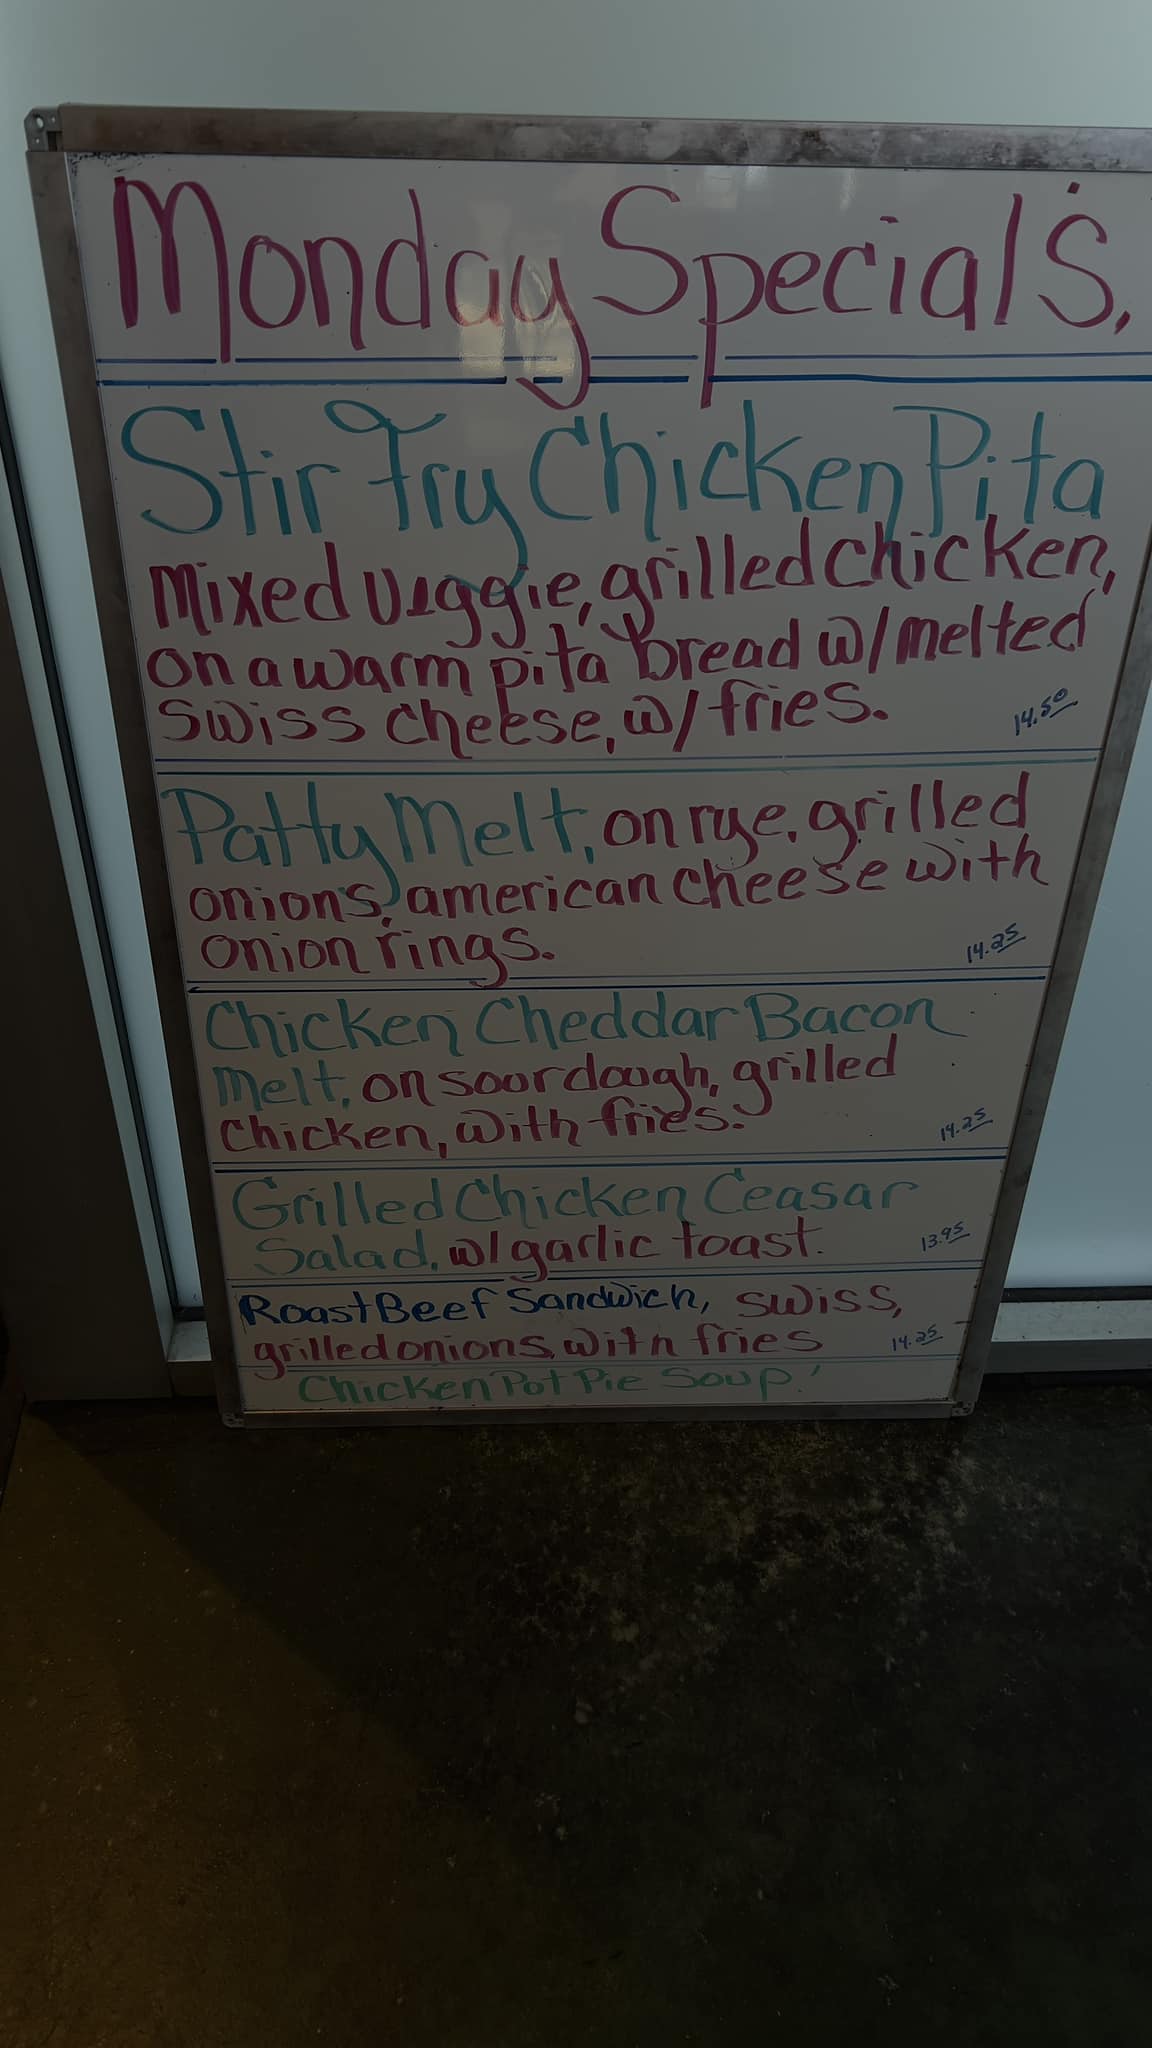 Monday Special's,
Stir Fry Chicken Pita
Mixed veggie, grilled chicken,
on a warm pita bread w/melted
swiss cheese, w/fries. 14.50
Patty Melt, on rye, grilled
onions, american cheese with
onion rings. 14.25
Chicken Cheddar Bacon
Melt, on sourdough, grilled
Chicken, with fries. 14.25
Grilled Chicken Ceasar
Salad, w/garlic toast. 13.95
Roast Beef Sandwich, swiss,
grilled onions, with fries 14.25
Chicken Pot Pie Soup!